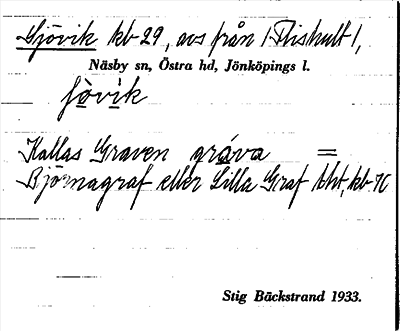 Sjövik kb 29, avs från /Flishult/,
Näsby sn, Östra hd, Jönköpings l.
jòvìk
Kallas Graven gráva =
Björnagraf eller Lilla Graf tht, kb 70
Stig Bäckstrand 1933.